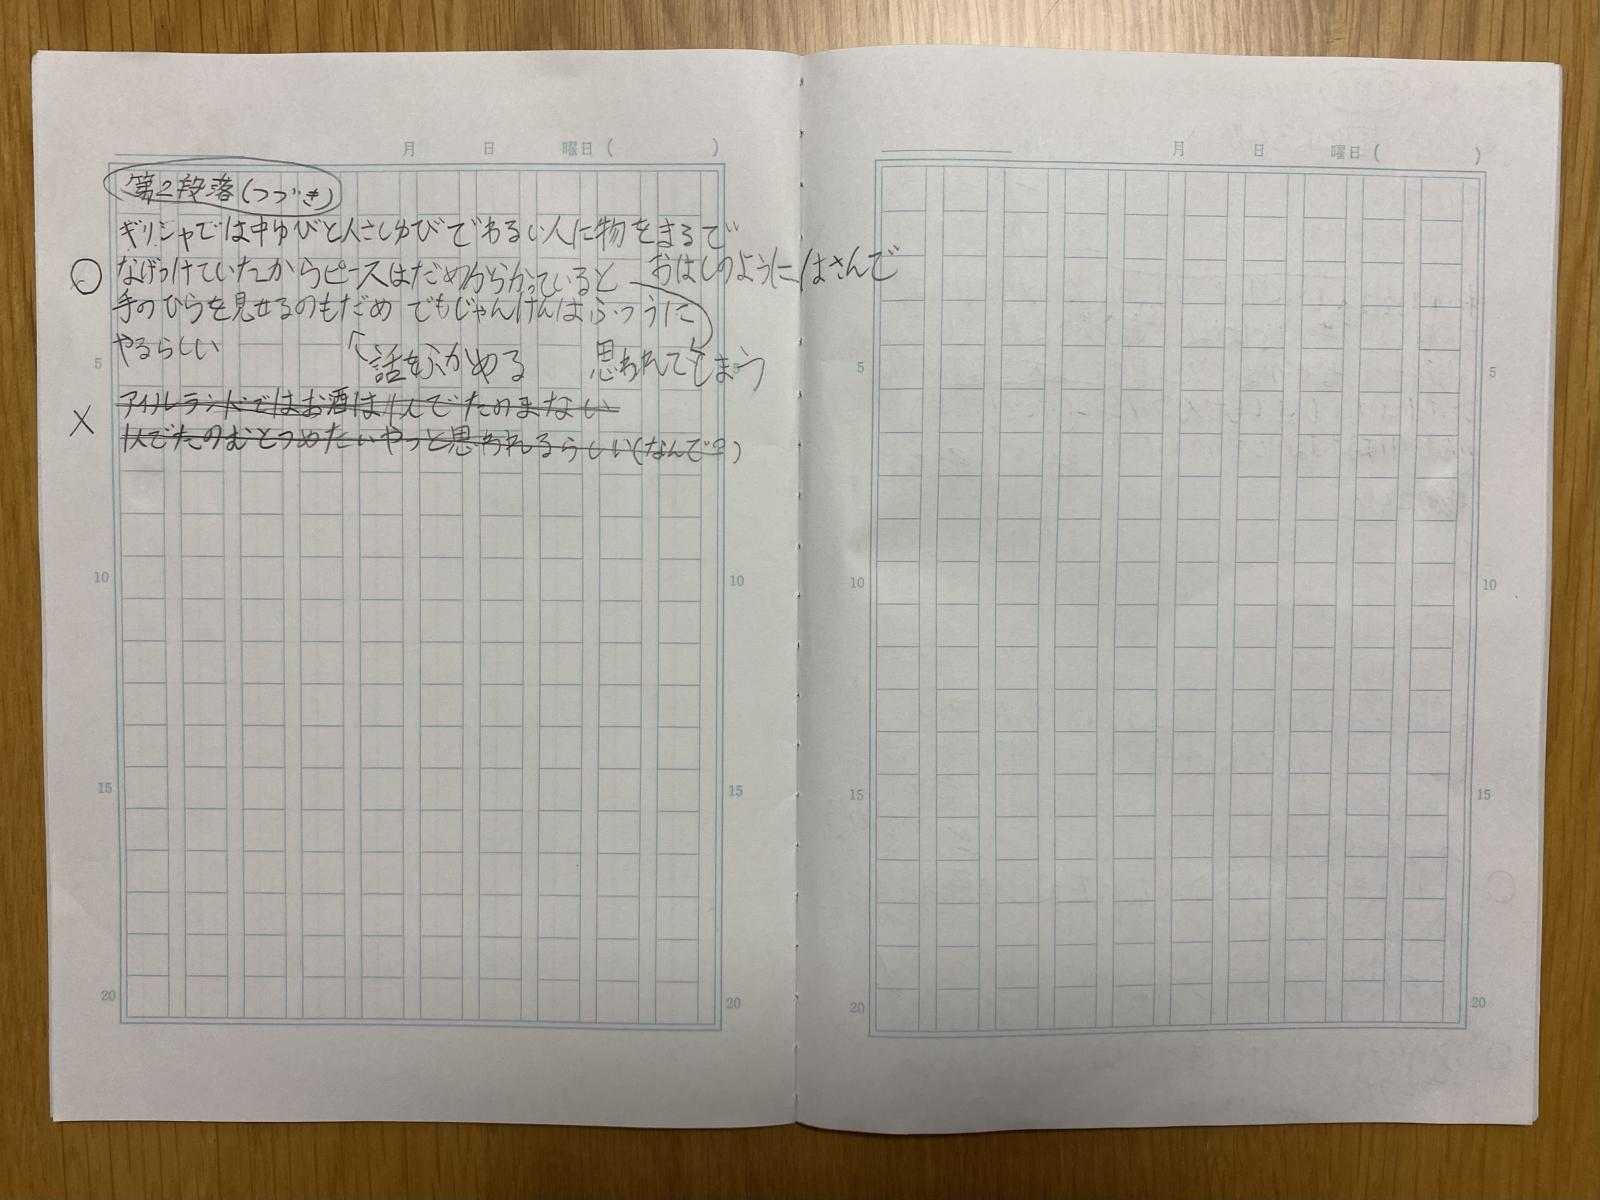 月 日 曜日( )
第2段落(つづき)
ギリシャでは中ゆびと人さしゆびでわるい人に物をまるで
おはしのようにはさんで
なげつけていたからピースはだめからかっていると
思われてしまう
手のひらを見せるのもだめ でもじゃんけんはふつうに
やるらしい
話をふかめる
アイルランドではお酒は1人でたのまない
1人でたのむとつめたいやつと思われるらしい(なんで?)
5
10
15
20
5
10
15
20
月 日 曜日( )
5
10
15
20
5
10
15
20